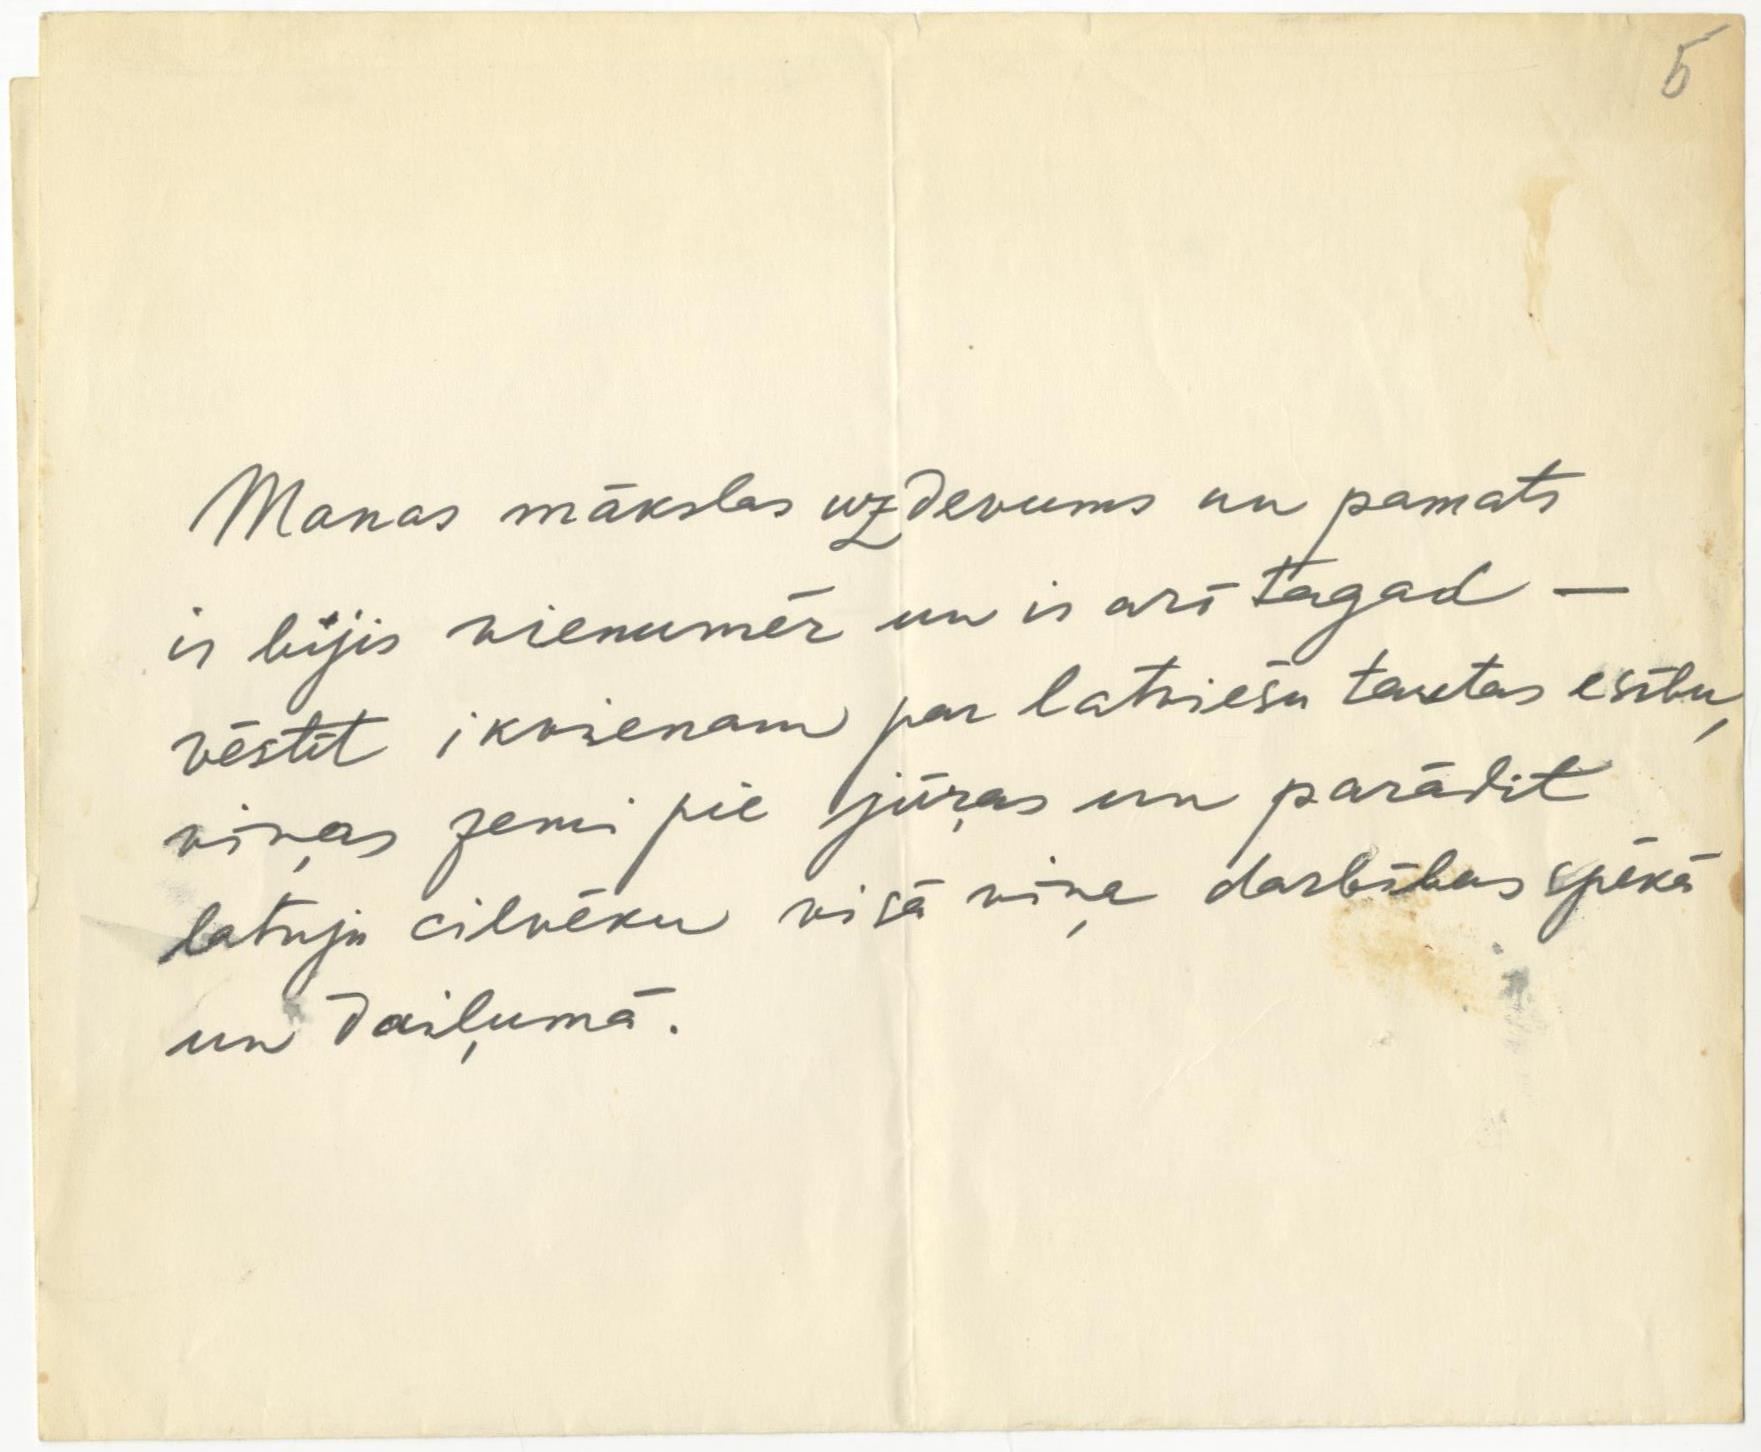 5
Manas mākslas uzdevums un pamats
ir bijis vienumēr un ir arī tagad —
vēstīt ikvienam par latviešu tautas esību,
viņas zemi pie jūŗas un parādīt
latvju cilvēku visā viņa darbības spēkā
un daiļumā.